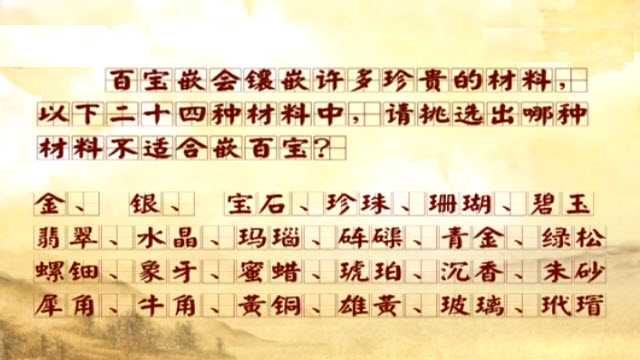 百宝嵌会镶嵌许多珍贵的材料,
以下二十四种材料中,请挑选出哪种
材料不适合嵌百宝?
金、 银、 宝石、珍珠、珊瑚、碧玉
翡翠、水晶、玛瑙、砗磲、青金、绿松
螺钿、象牙、蜜蜡、琥珀、沉香、朱砂
犀角、牛角、黄铜、雄黄、玻璃、玳瑁